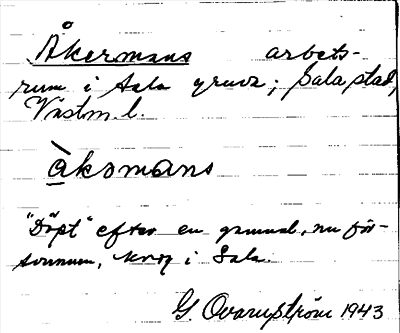 Åkermans arbets-
rum i Sala gruva; Sala stad,
Västm. l.
àksmans
"Döpt" efter en gammal, nu för-
svunnen, krog i Sala.
G. Qvarnström 1943